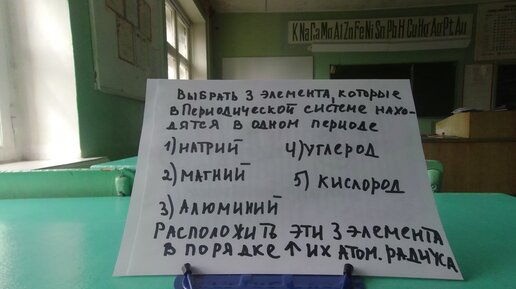 K Na Ca Mg Al Zn Fe Ni Sn Pb H Cu Hg Ag Pt Au
ВЫБРАТЬ 3 ЭЛЕМЕНТА, КОТОРЫЕ
В ПЕРИОДИЧЕСКОЙ СИСТЕМЕ НАХО-
ДЯТСЯ В ОДНОМ ПЕРИОДЕ
1) НАТРИЙ 4) УГЛЕРОД
2) МАГНИЙ 5) КИСЛОРОД
3) АЛЮМИНИЙ
РАСПОЛОЖИТЬ ЭТИ 3 ЭЛЕМЕНТА
В ПОРЯДКЕ ↑ ИХ АТОМ. РАДИУСА